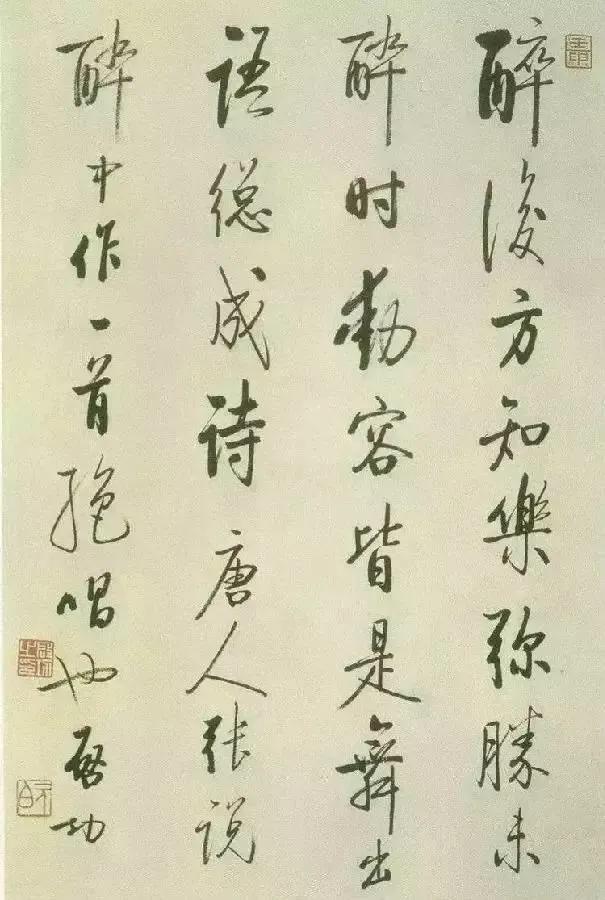 醉後方知樂弥勝未
醉时動容皆是舞出
语總成诗唐人张说
醉中作一首绝唱也启功